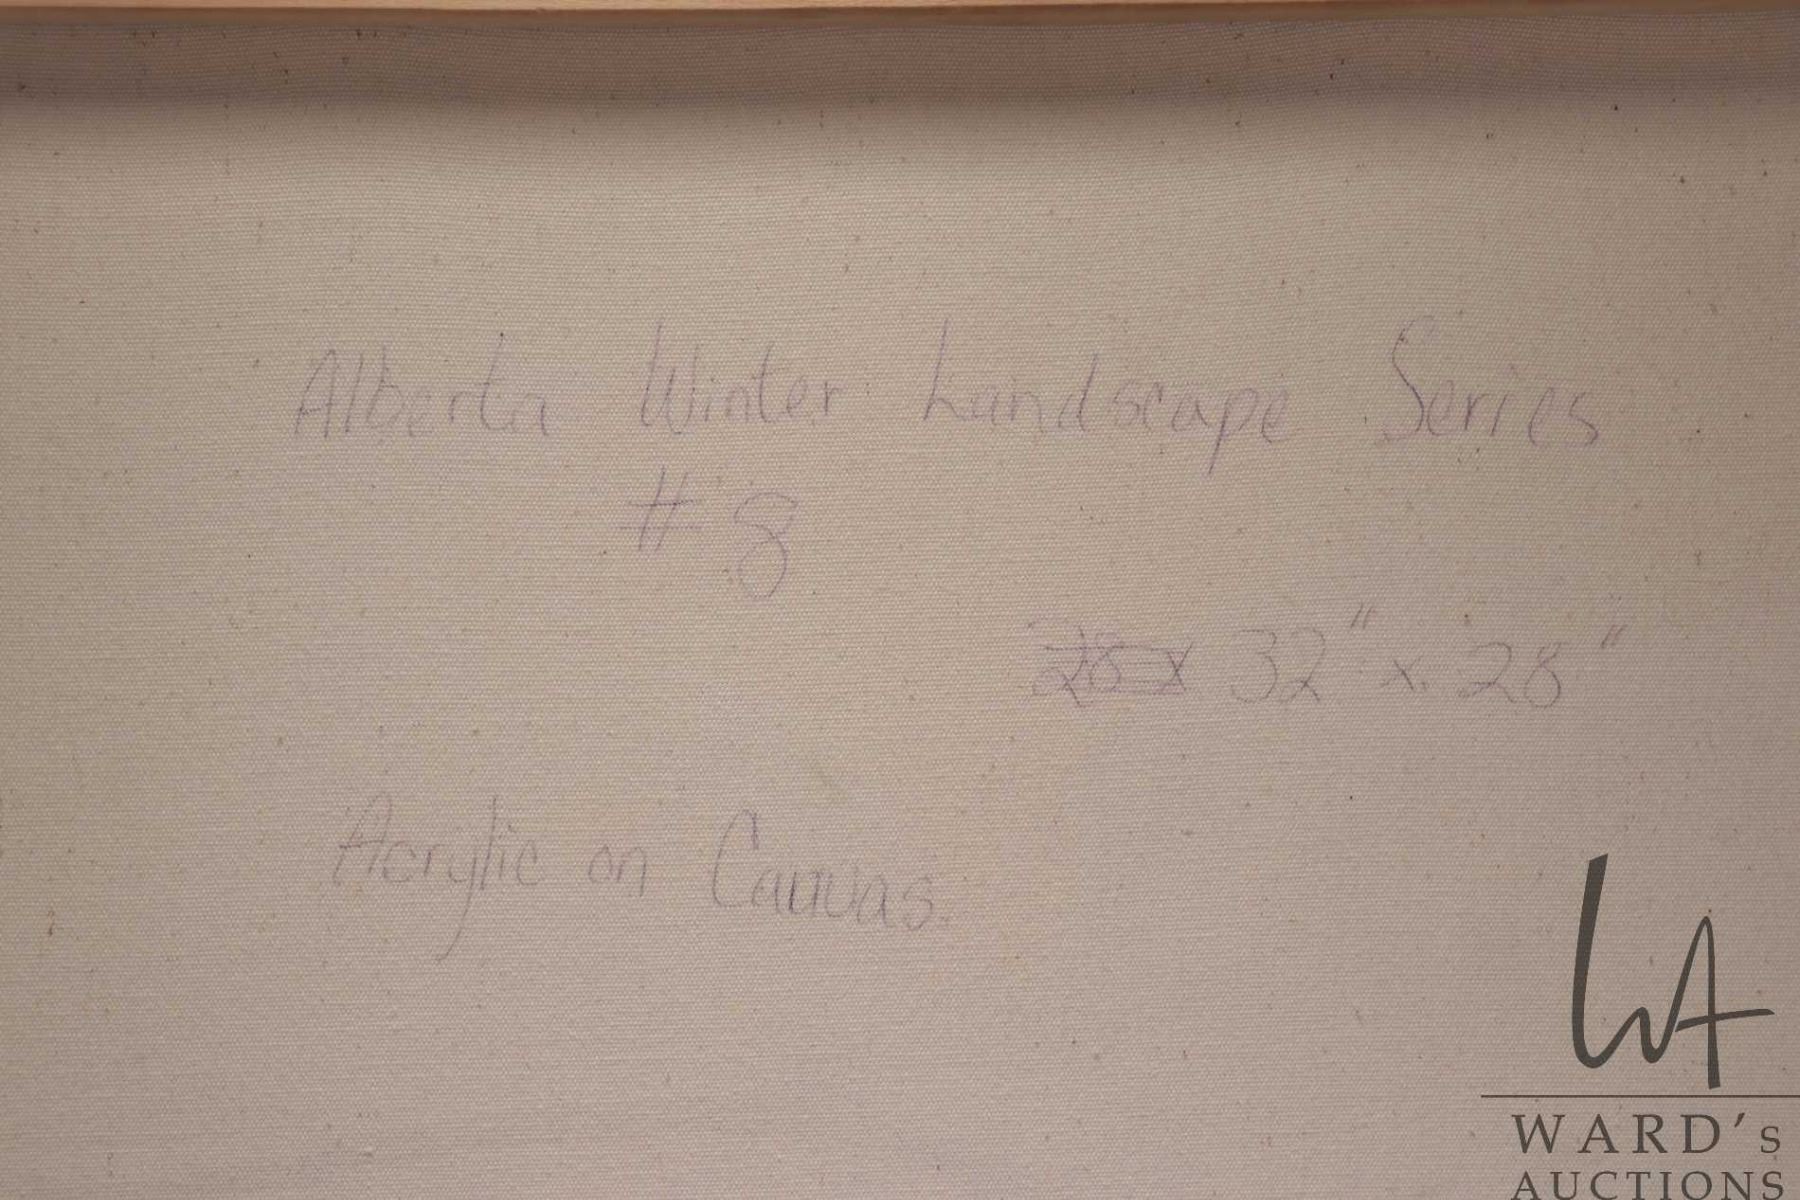 Alberta Winter Landscape Series
# 8
28 x 32" x 28"
Acrylic on Canvas.
WA
WARD's
AUCTIONS